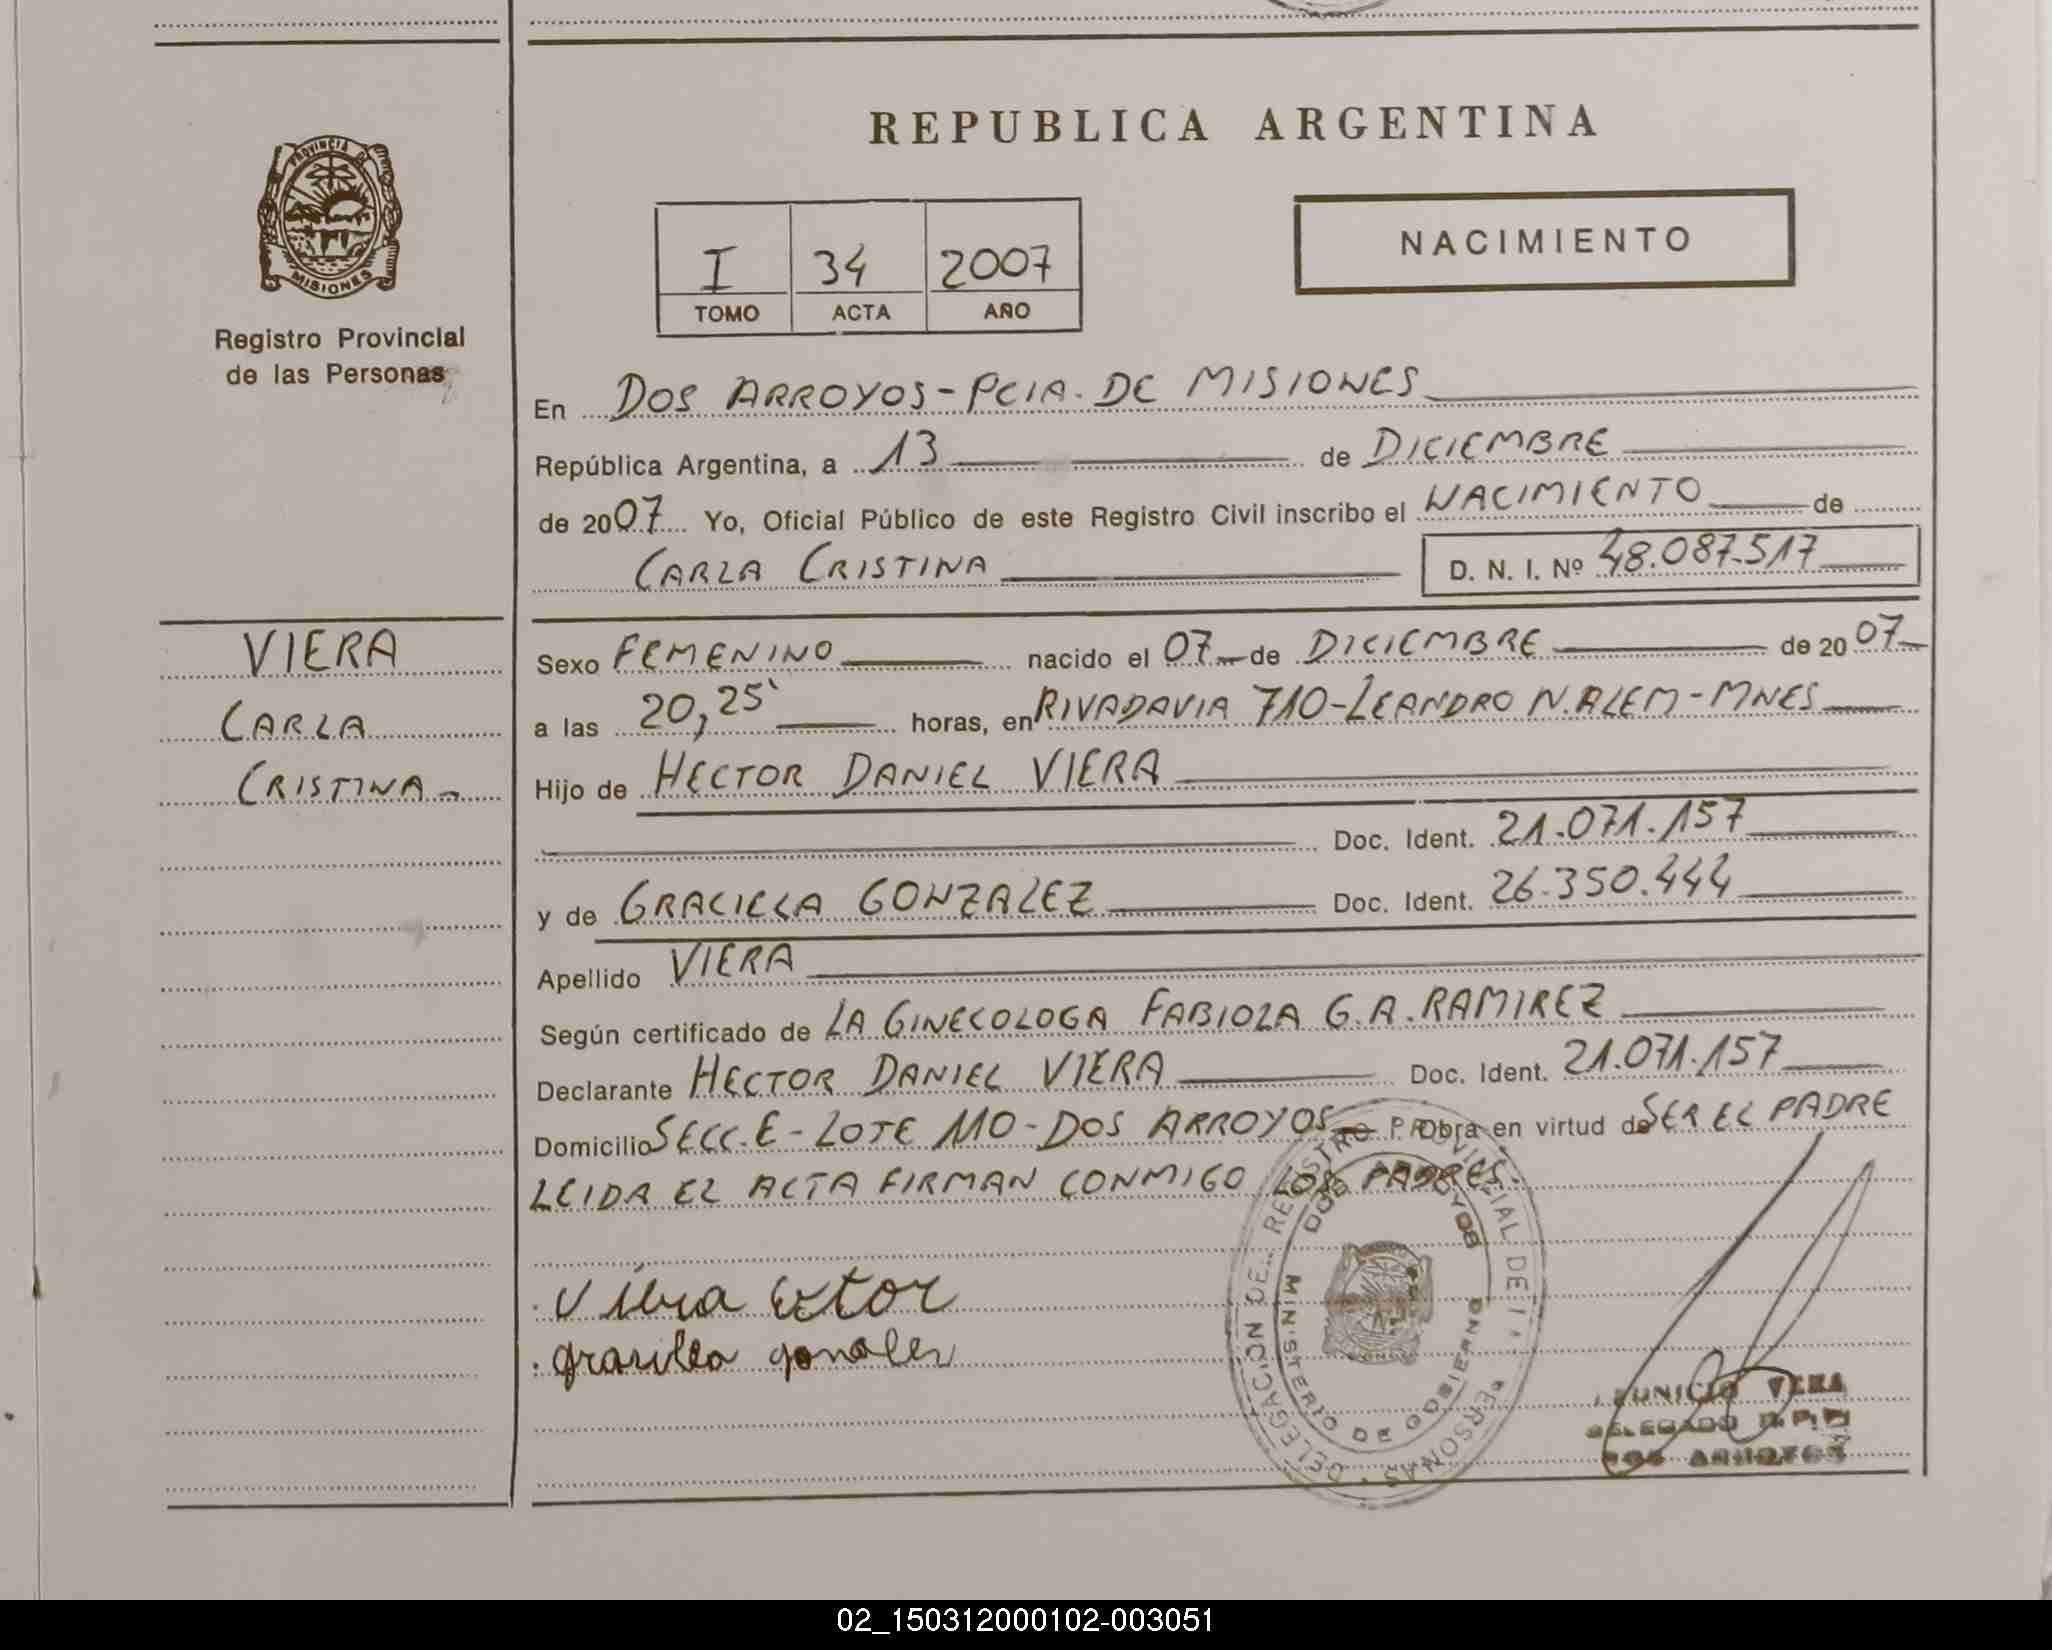 REPUBLICA ARGENTINA
PROVINCIA DE
MISIONES
Registro Provincial
de las Personas
I 34 2007
TOMO ACTA AÑO
NACIMIENTO
En DOS ARROYOS - PCIA. DE MISIONES
República Argentina, a 13 de DICIEMBRE
de 2007 Yo, Oficial Público de este Registro Civil inscribo el NACIMIENTO de
CARLA CRISTINA D. N. I. Nº 48.087.517
VIERA
CARLA
CRISTINA
Sexo FEMENINO nacido el 07 de DICIEMBRE de 2007
a las 20,25 horas, en RIVADAVIA 710 - LEANDRO N. ALEM - MNES
Hijo de HECTOR DANIEL VIERA
Doc. Ident. 21.071.157
y de GRACIELA GONZALEZ Doc. Ident. 26.350.444
Apellido VIERA
Según certificado de LA GINECOLOGA FABIOLA G.A. RAMIREZ
Declarante HECTOR DANIEL VIERA Doc. Ident. 21.071.157
Domicilio SECC. E - LOTE 110 - DOS ARROYOS Obra en virtud de SER EL PADRE
LEIDA EL ACTA FIRMAN CONMIGO LOS PADRES.
DELEGACION DE REGISTRO PROVINCIAL DE PERSONAS
DOS ARROYOS
MINISTERIO DE GOBIERNO
DELEGADO
DOS ARROYOS
02_150312000102-003051